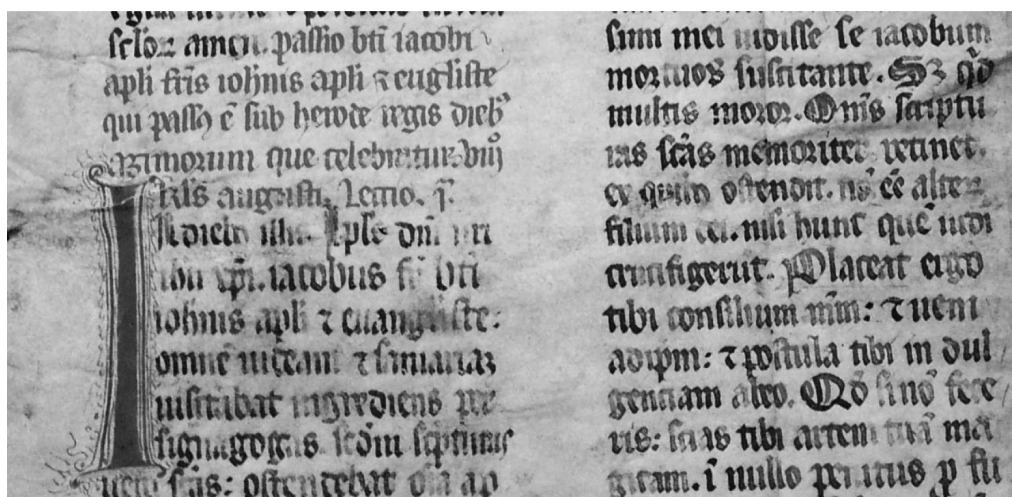 sctoꝝ amen. passio bti iacobi
apli fris ioħnis apli ⁊ eugliste
qui passꝯ ē sub herode regis dieb⁹
azimorum que celebratur viii
kls augusti. Lectio. i
In dieb illis. Aplꝰ dni nri
ihu xpi. iacobus fr bti
iohnis apli ⁊ euangeliste:
omnē iudeam ⁊ samariaꝫ
uisitabat ingrediens per
signagogas. scdm scpturas
uero scas: ostendebat oīa
simi mei uidisse se iacobum
mortuos suscitante. Sꝫ qd
multis moror. Omīs scriptu
ras scas memoriter retinet.
ex quib ostendit. nō eē alteꝝ
filium dei. nisi hunc quē iudi
crucifigerūt. Placeat ergo
tibi consilium mm: ⁊ ueni
ad ipm: ⁊ postula tibi in dul
gentiam ab eo. Qd si nō fece
ris: scias tibi artem tuā ma
gicam. ī nullo penitus